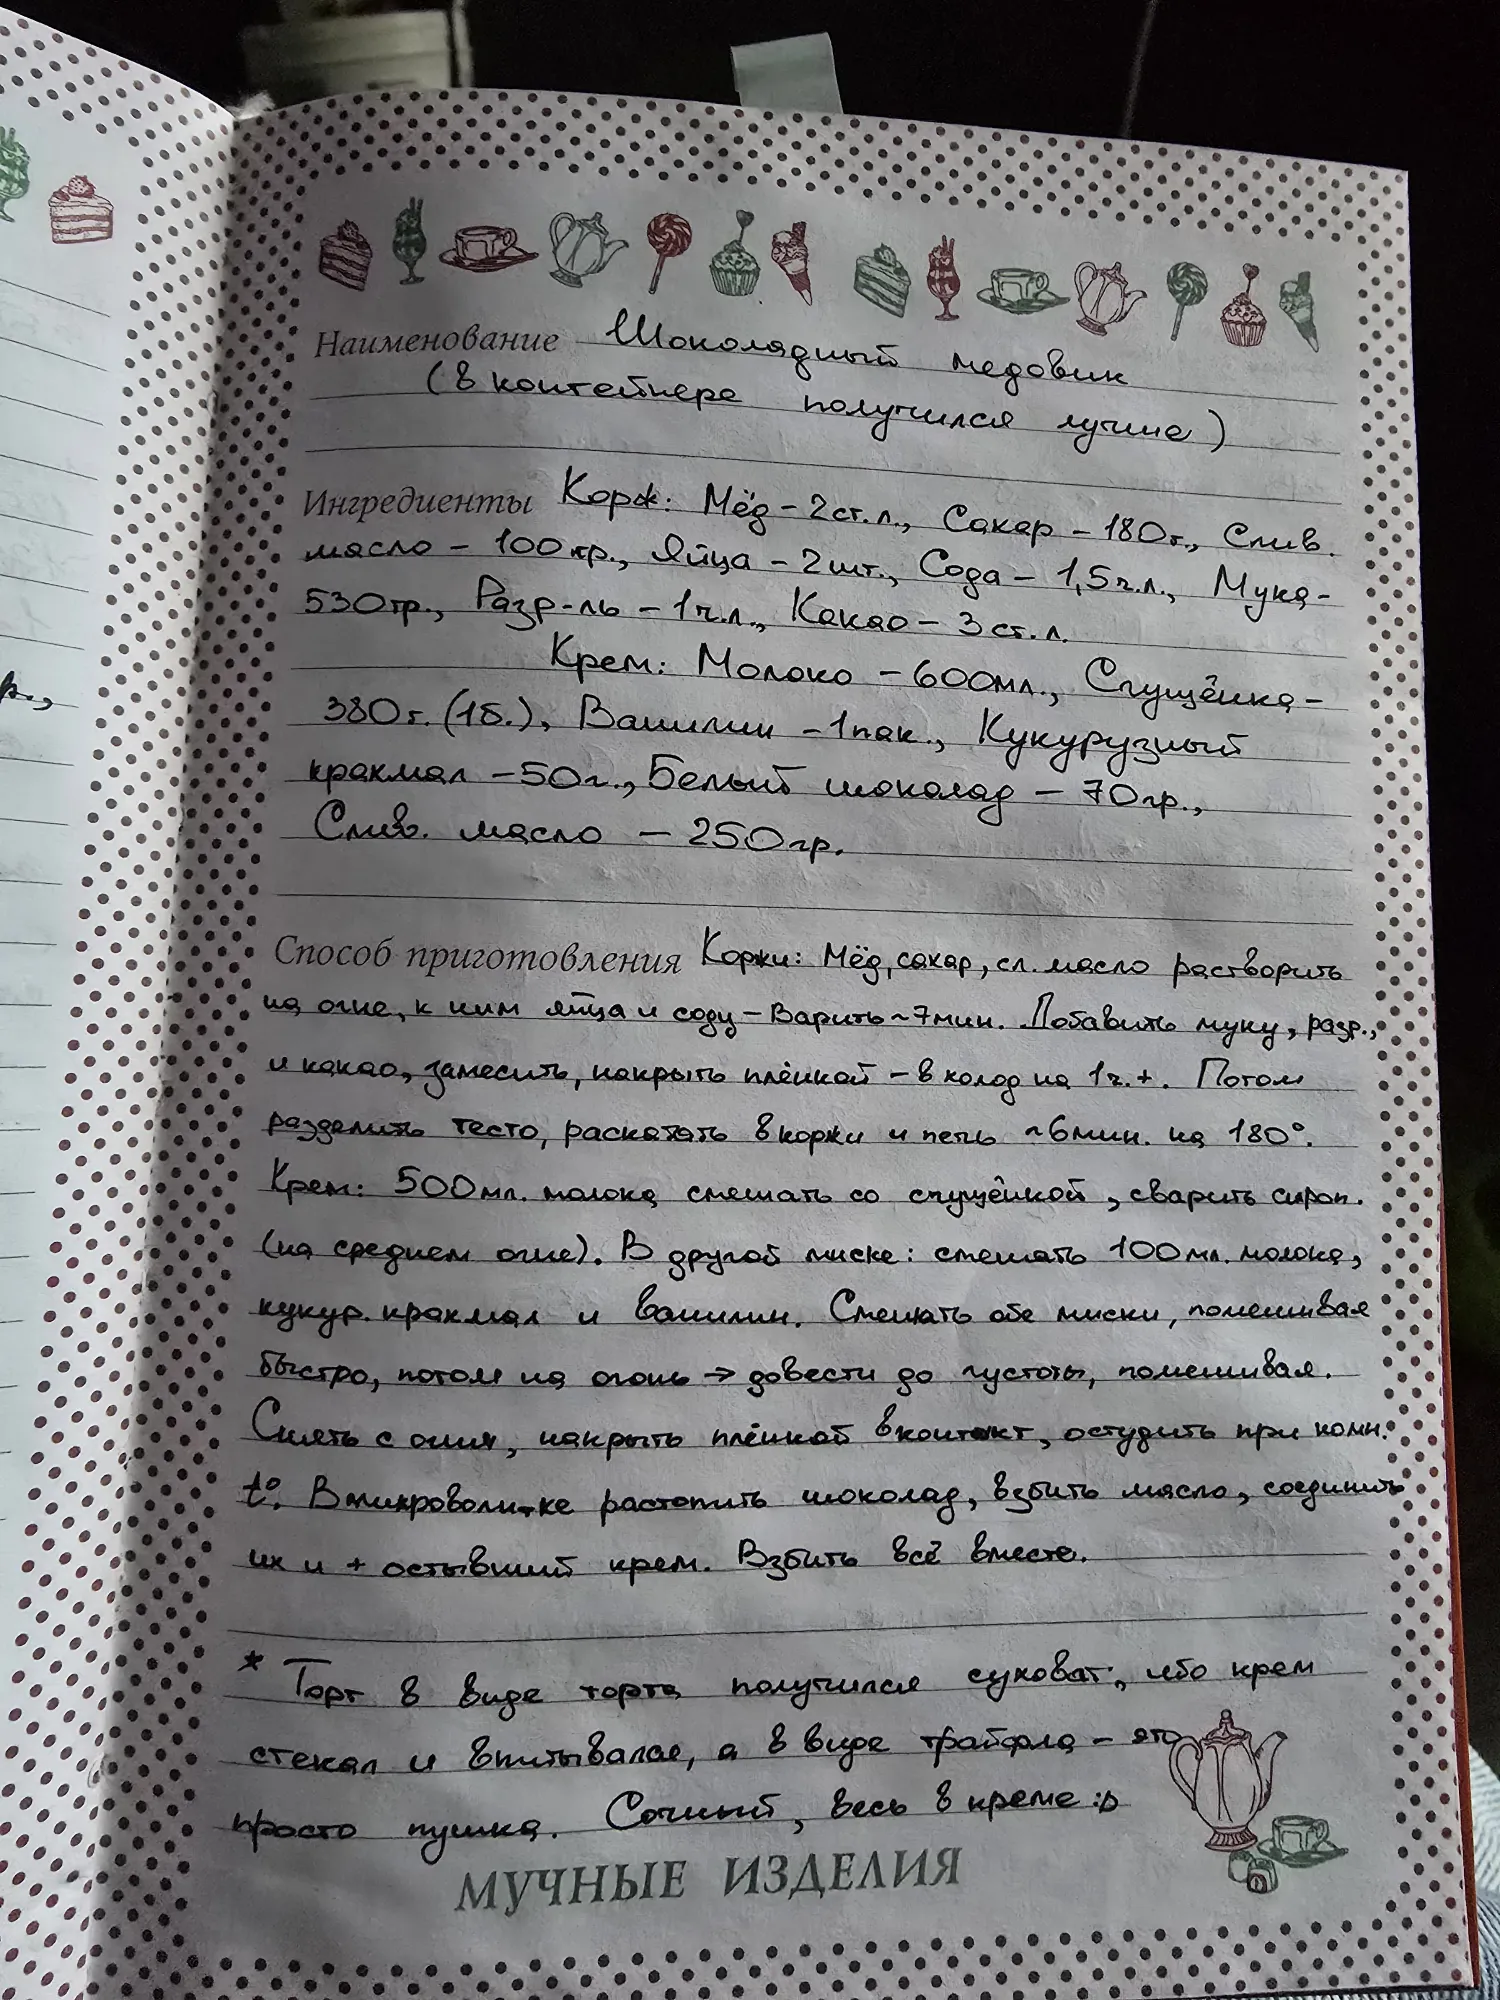 Наименование Шоколадный медовик
(в контейнере получился лучше)
Ингредиенты Корж: Мёд - 2 ст.л., Сахар - 180 г., Слив.
масло - 100 гр., Яйца - 2 шт., Сода - 1,5 ч.л., Мука -
530 гр., Разр-ль - 1 ч.л., Какао - 3 ст.л.
р.,
Крем: Молоко - 600 мл., Сгущёнка -
380 г. (1 б.), Ванилин - 1 пак., Кукурузный
крахмал - 50 г., Белый шоколад - 70 гр.,
Слив. масло - 250 гр.
Способ приготовления Коржи: Мёд, сахар, сл. масло растворить
на огне, к ним яйца и соду - Варить ~7 мин. Добавить муку, разр.,
и какао, замесить, накрыть плёнкой - в холод на 1 ч.+. Потом
разделить тесто, раскатать в коржи и печь ~6 мин. на 180°.
Крем: 500 мл. молока смешать со сгущёнкой, сварить сироп.
(на среднем огне). В другой миске: смешать 100 мл. молока,
кукур. крахмал и ванилин. Смешать обе миски, помешивая
быстро, потом на огонь → довести до густоты, помешивая.
Снять с огня, накрыть плёнкой в контакт, остудить при комн.
t°. В микроволновке растопить шоколад, взбить масло, соединить
их и + остывший крем. Взбить всё вместе.
* Торт в виде торта получился суховат, ибо крем
стекал и впитывался, а в виде трайфла - это
просто пушка. Сочный, весь в креме :D
МУЧНЫЕ ИЗДЕЛИЯ